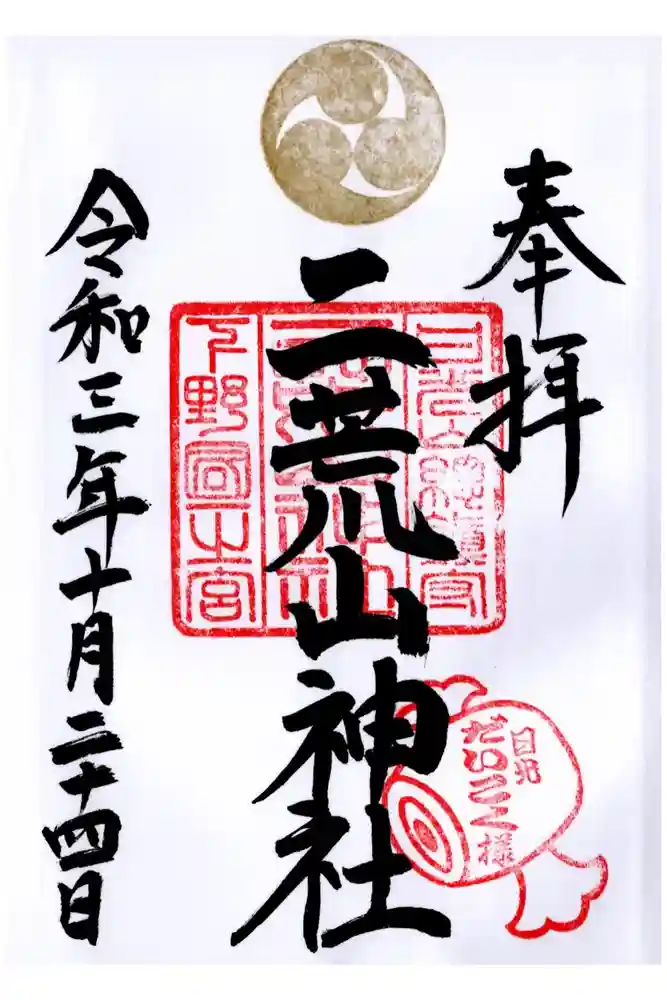 奉拝
二荒山神社
下野國一之宮
日光
だいこく様
令和三年十月二十四日